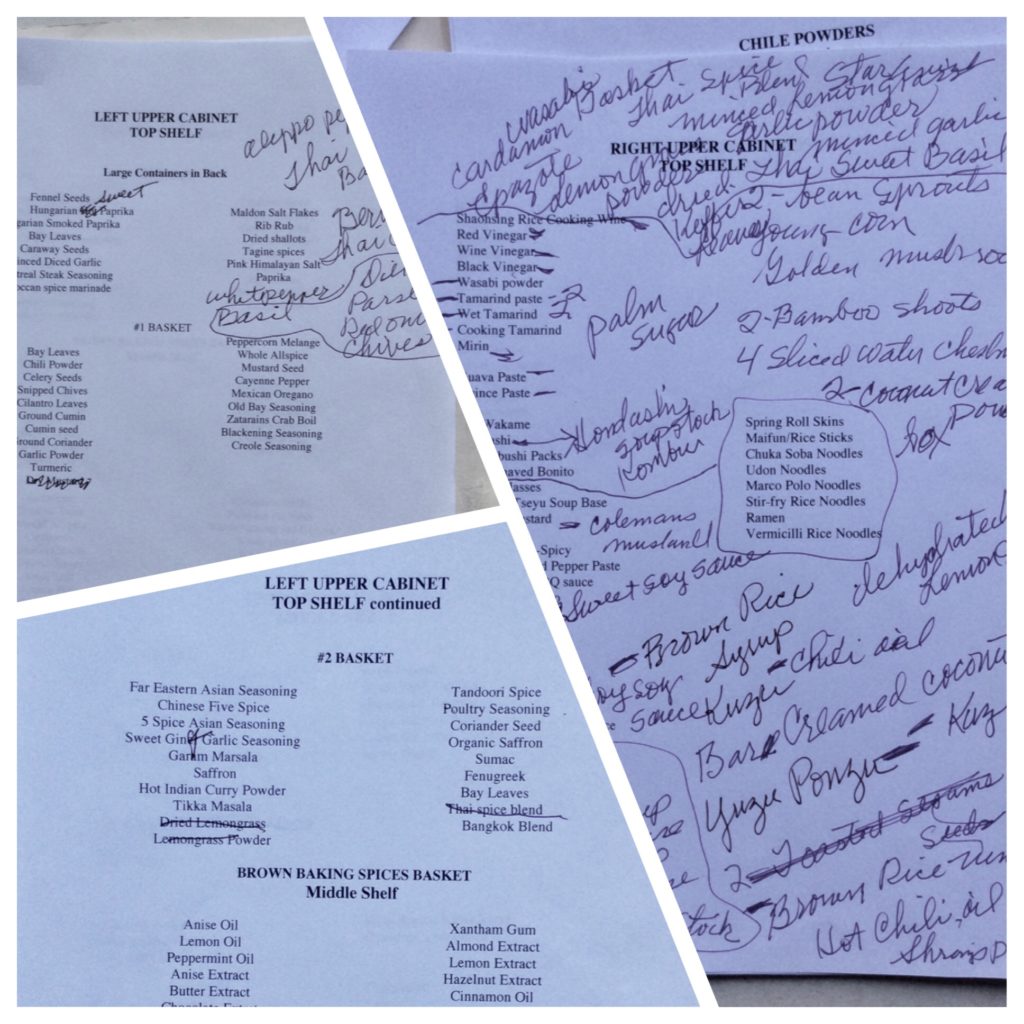 LEFT UPPER CABINET
TOP SHELF
aleppo
Thai
Large Containers in Back
Fennel Seeds
sweet
Hungarian Paprika
garian Smoked Paprika
Bay Leaves
Caraway Seeds
inced Diced Garlic
treal Steak Seasoning
occan spice marinade
Maldon Salt Flakes
Rib Rub
Dried shallots
Tagine spices
Pink Himalayan Salt
Paprika
white pepper
Basil
Chives
#1 BASKET
Bay Leaves
Chili Powder
Celery Seeds
Snipped Chives
Cilantro Leaves
Ground Cumin
Cumin seed
Ground Coriander
Garlic Powder
Turmeric
Peppercorn Melange
Whole Allspice
Mustard Seed
Cayenne Pepper
Mexican Oregano
Old Bay Seasoning
Zatarains Crab Boil
Blackening Seasoning
Creole Seasoning
LEFT UPPER CABINET
TOP SHELF continued
#2 BASKET
Far Eastern Asian Seasoning
Chinese Five Spice
5 Spice Asian Seasoning
Sweet Ging Garlic Seasoning
Garam Marsala
Saffron
Hot Indian Curry Powder
Tikka Masala
Dried Lemongrass
Lemongrass Powder
Tandoori Spice
Poultry Seasoning
Coriander Seed
Organic Saffron
Sumac
Fenugreek
Bay Leaves
Thai spice blend
Bangkok Blend
BROWN BAKING SPICES BASKET
Middle Shelf
Anise Oil
Lemon Oil
Peppermint Oil
Anise Extract
Butter Extract
Chocolate Extract
Xantham Gum
Almond Extract
Lemon Extract
Hazelnut Extract
Cinnamon Oil
CHILE POWDERS
wasabi Basket
Thai Spice Blend
minced lemongrass
cardamon
garlic powder
minced garlic
Epazote
lemongrass powder
dried Thai Sweet Basil
RIGHT UPPER CABINET
TOP SHELF
Keffir Leaves
2-bean sprouts
young corn
Golden mushroo
2-Bamboo shoots
4 Sliced Water Chestn
2-coconut crea
Shaohsing Rice Cooking Wine
Red Vinegar
Wine Vinegar
Black Vinegar
Wasabi powder
Tamarind paste
Wet Tamarind
2
Cooking Tamarind
Mirin
palm
sugar
uava Paste
ince Paste
Wakame
ashi
Hondashi
soup stock
Kombu
bushi Packs
haved Bonito
lasses
Tseyu Soup Base
ustard
colemans
mustard
-Spicy
d Pepper Paste
Q sauce
Sweet soy sauce
Spring Roll Skins
Maifun/Rice Sticks
Chuka Soba Noodles
Udon Noodles
Marco Polo Noodles
Stir-fry Rice Noodles
Ramen
Vermicilli Rice Noodles
box
dehydrated
Lemon
Brown Rice
Syrup
Chili oil
soy
sauce
Kuzu
Bar Creamed coconut
Yuzu Ponzu
Kuz
2-Toasted Sesame
Seeds
Brown Rice
Hot Chili oil
tock